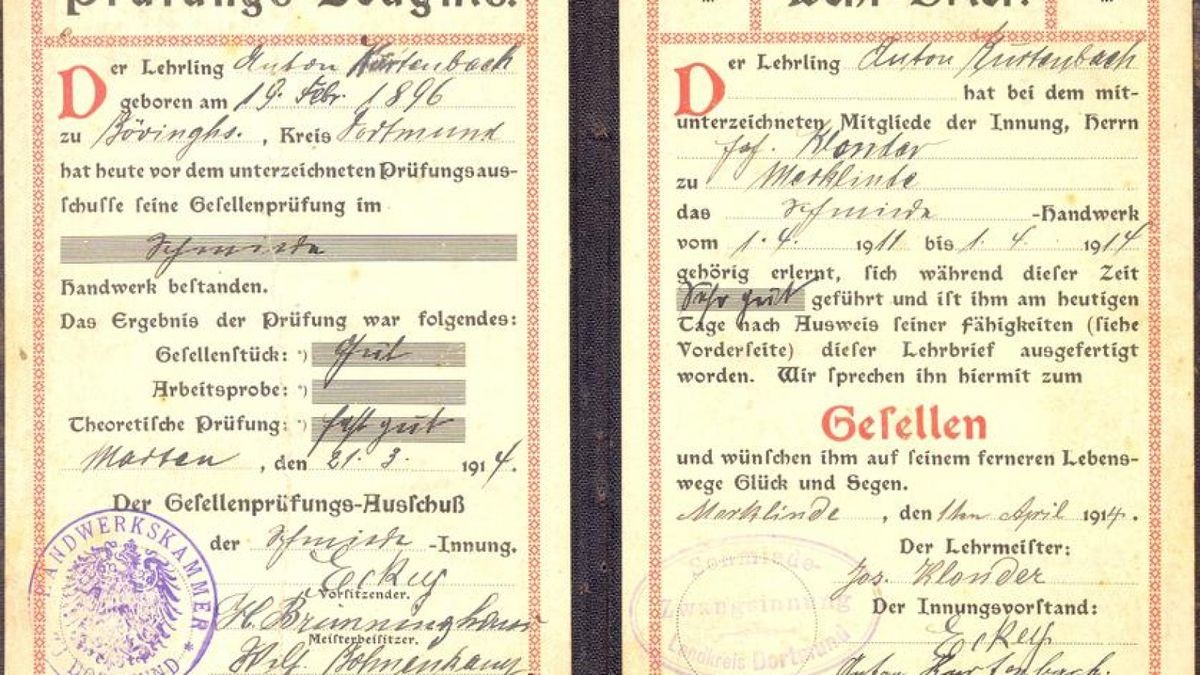 Prüfungs-Zeugnis.
Der Lehrling Anton Kurtenbach
geboren am 19. Febr. 1896
zu Bövinghs., Kreis Dortmund
hat heute vor dem unterzeichneten Prüfungsaus-
schusse seine Gesellenprüfung im
Schmiede
Handwerk bestanden.
Das Ergebnis der Prüfung war folgendes:
Gesellenstück: *) Gut
Arbeitsprobe: *)
Theoretische Prüfung: *) fast gut
Marten, den 21. 3. 1914.
Der Gesellenprüfungs-Ausschuß
der Schmiede-Innung.
Eckey
Vorsitzender.
H. Brünninghaus
Meisterbeisitzer.
Wilh.
HANDWERKSKAMMER
DORTMUND
Lehr-Brief.
Der Lehrling Anton Kurtenbach
hat bei dem mit-
unterzeichneten Mitgliede der Innung, Herrn
Jos. Klonder
zu Marklinde
das Schmiede-Handwerk
vom 1. 4. 1911 bis 1. 4. 1914
gehörig erlernt, sich während dieser Zeit
Sehr gut geführt und ist ihm am heutigen
Tage nach Ausweis seiner Fähigkeiten (siehe
Vorderseite) dieser Lehrbrief ausgefertigt
worden. Wir sprechen ihn hiermit zum
Gesellen
und wünschen ihm auf seinem ferneren Lebens-
wege Glück und Segen.
Marklinde, den 1ten April 1914.
Der Lehrmeister:
Jos. Klonder
Der Innungsvorstand:
Eckey
Anton Kurtenbach.
Schmiede-
Zwangsinnung
Landkreis Dortmund